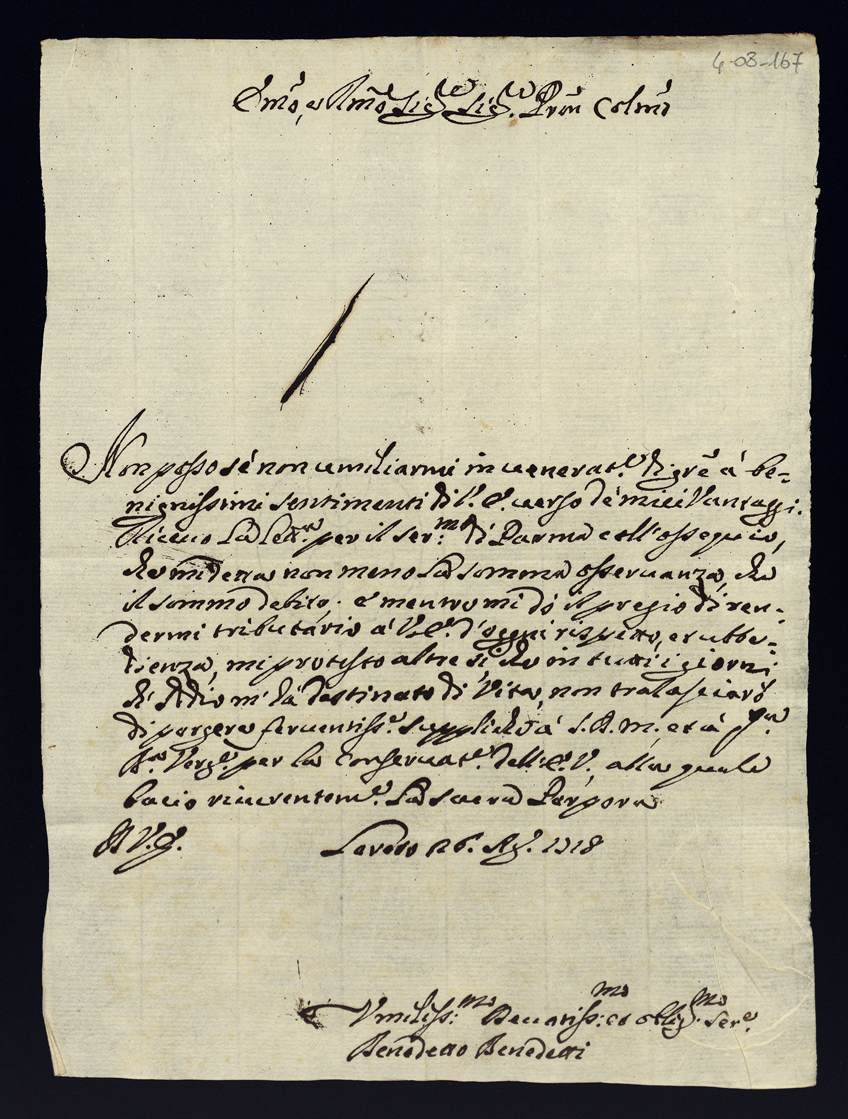 4-03-167
Emo, e Rmo Sig.re Sig.re Pron Colmo
Non posso sé non umiliarmi in venerat.e di grē á be=
nignissimi sentimenti di V. E. verso dé miei Vantaggi.
Ricevo La Lett.ra per il Ser.mo di Parma coll'ossequio,
che mi detta non meno La somma osservanza, che
il sommo debito; e mentre mi dó il pregio di ren=
dermi tributário á V. E. d'ogni rispetto, et ubbe=
dienza, mi protesto altresi che in tutti i giorni
ch'Iddio m'há destinato di Vita, non tralascieró
di porgere ferventiss.e suppliche á S. D. M. et á q.ta
B.a Verg.e per la Conservat.e dell'E. V., alla quale
bacio riverentem.e La sacra Porpora
Di V. E. Loreto 26. Ag.
Umiliss.mo Devotiss.mo et obblig.mo Ser.e
Benedetto Benedetti